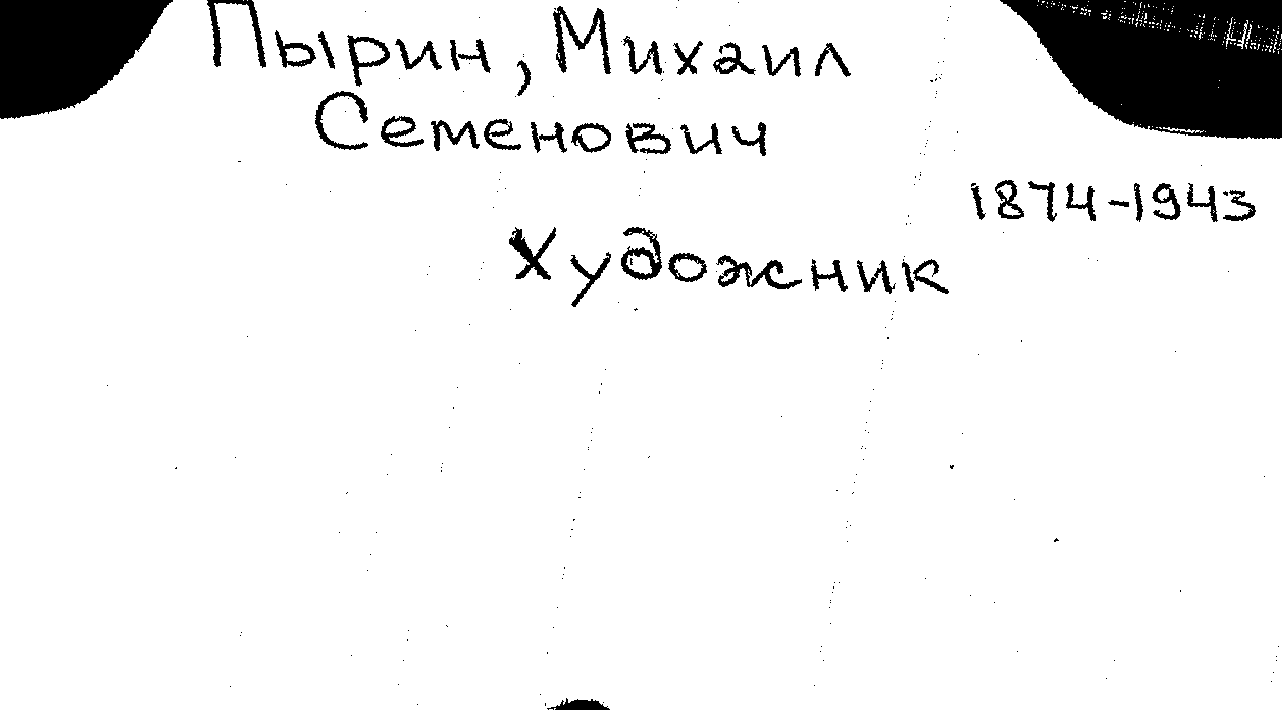 Пырин, Михаил
Семенович
1874-1943
Художник